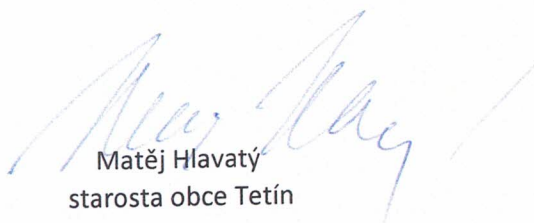 Matěj Hlavatý
starosta obce Tetín